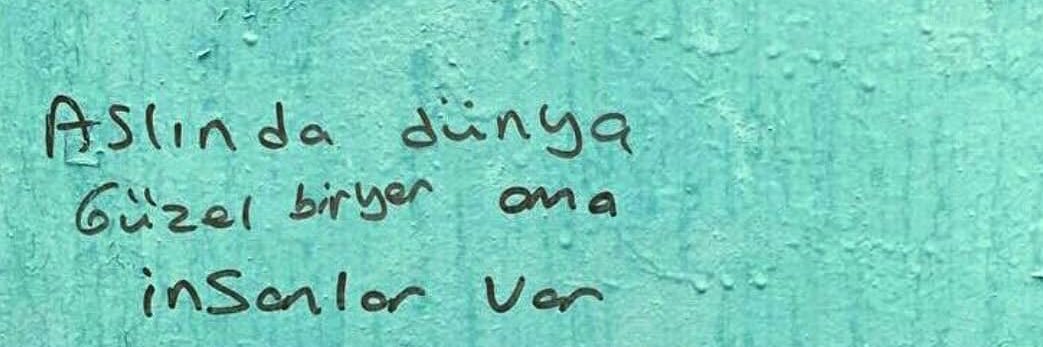 Aslında dünya
Güzel biryer ama
insanlar var